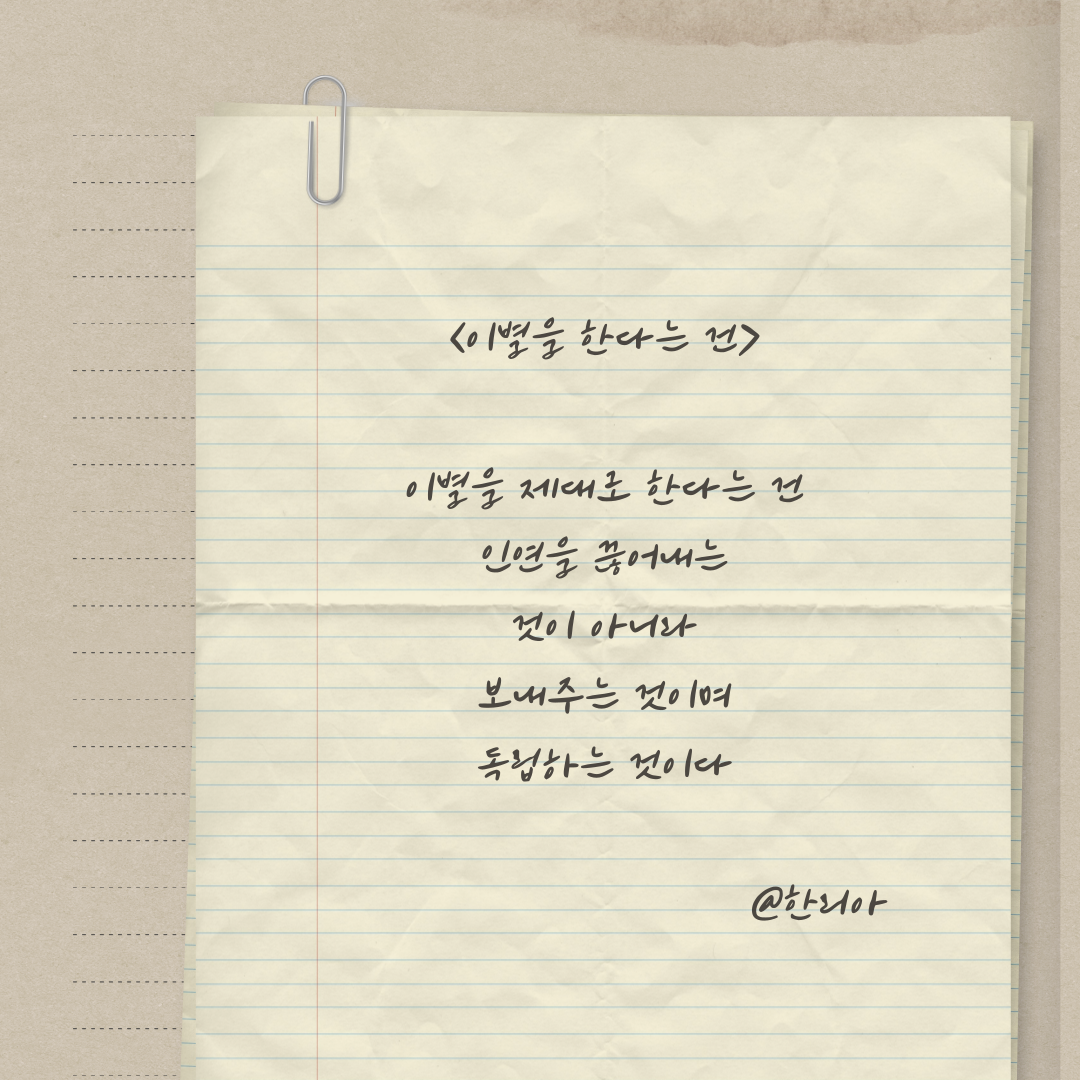 <이별을 한다는 건>
이별을 제대로 한다는 건
인연을 끊어내는
것이 아니라
보내주는 것이며
독립하는 것이다
@한리아